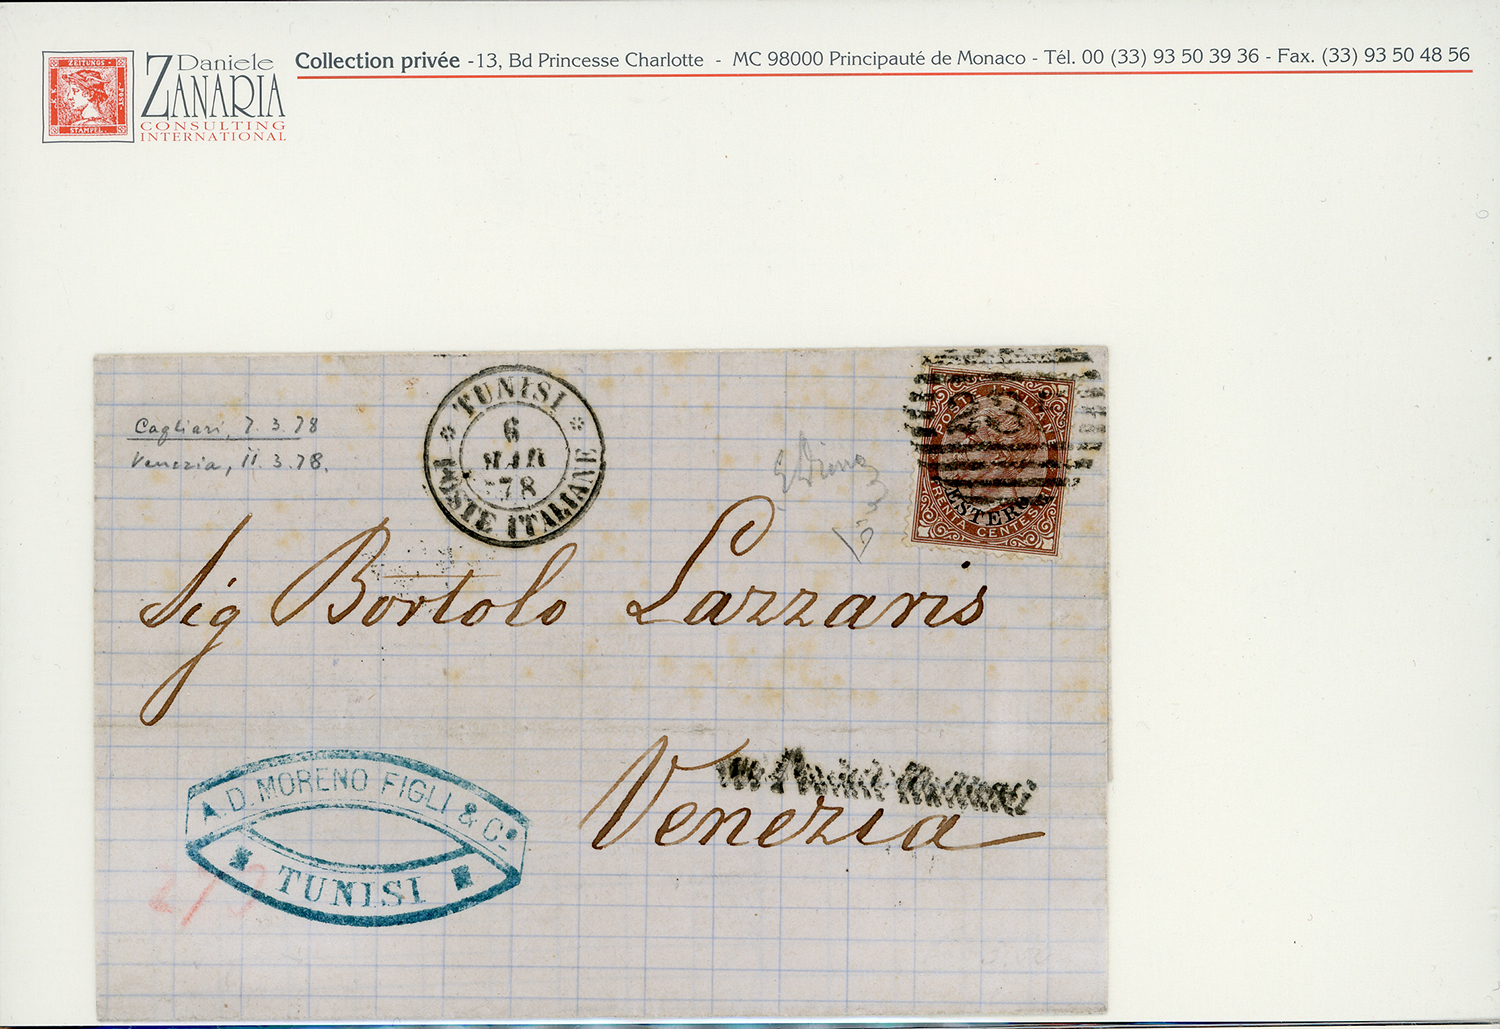 Daniele
ZANARIA
CONSULTING
INTERNATIONAL
ZEITUNGS
K
POST
STAMPEL
Collection privée - 13, Bd Princesse Charlotte - MC 98000 Principauté de Monaco - Tél. 00 (33) 93 50 39 36 - Fax. (33) 93 50 48 56
Cagliari, 7.3.78
Venezia, 11.3.78.
TUNISI
6
MAR
78
POSTE ITALIANE
POSTE ITALIANE
ESTERO
TRENTA CENTESIMI
Sig Bortolo Lazzaris
Venezia
A. D. MORENO FIGLI & Cº
TUNISI